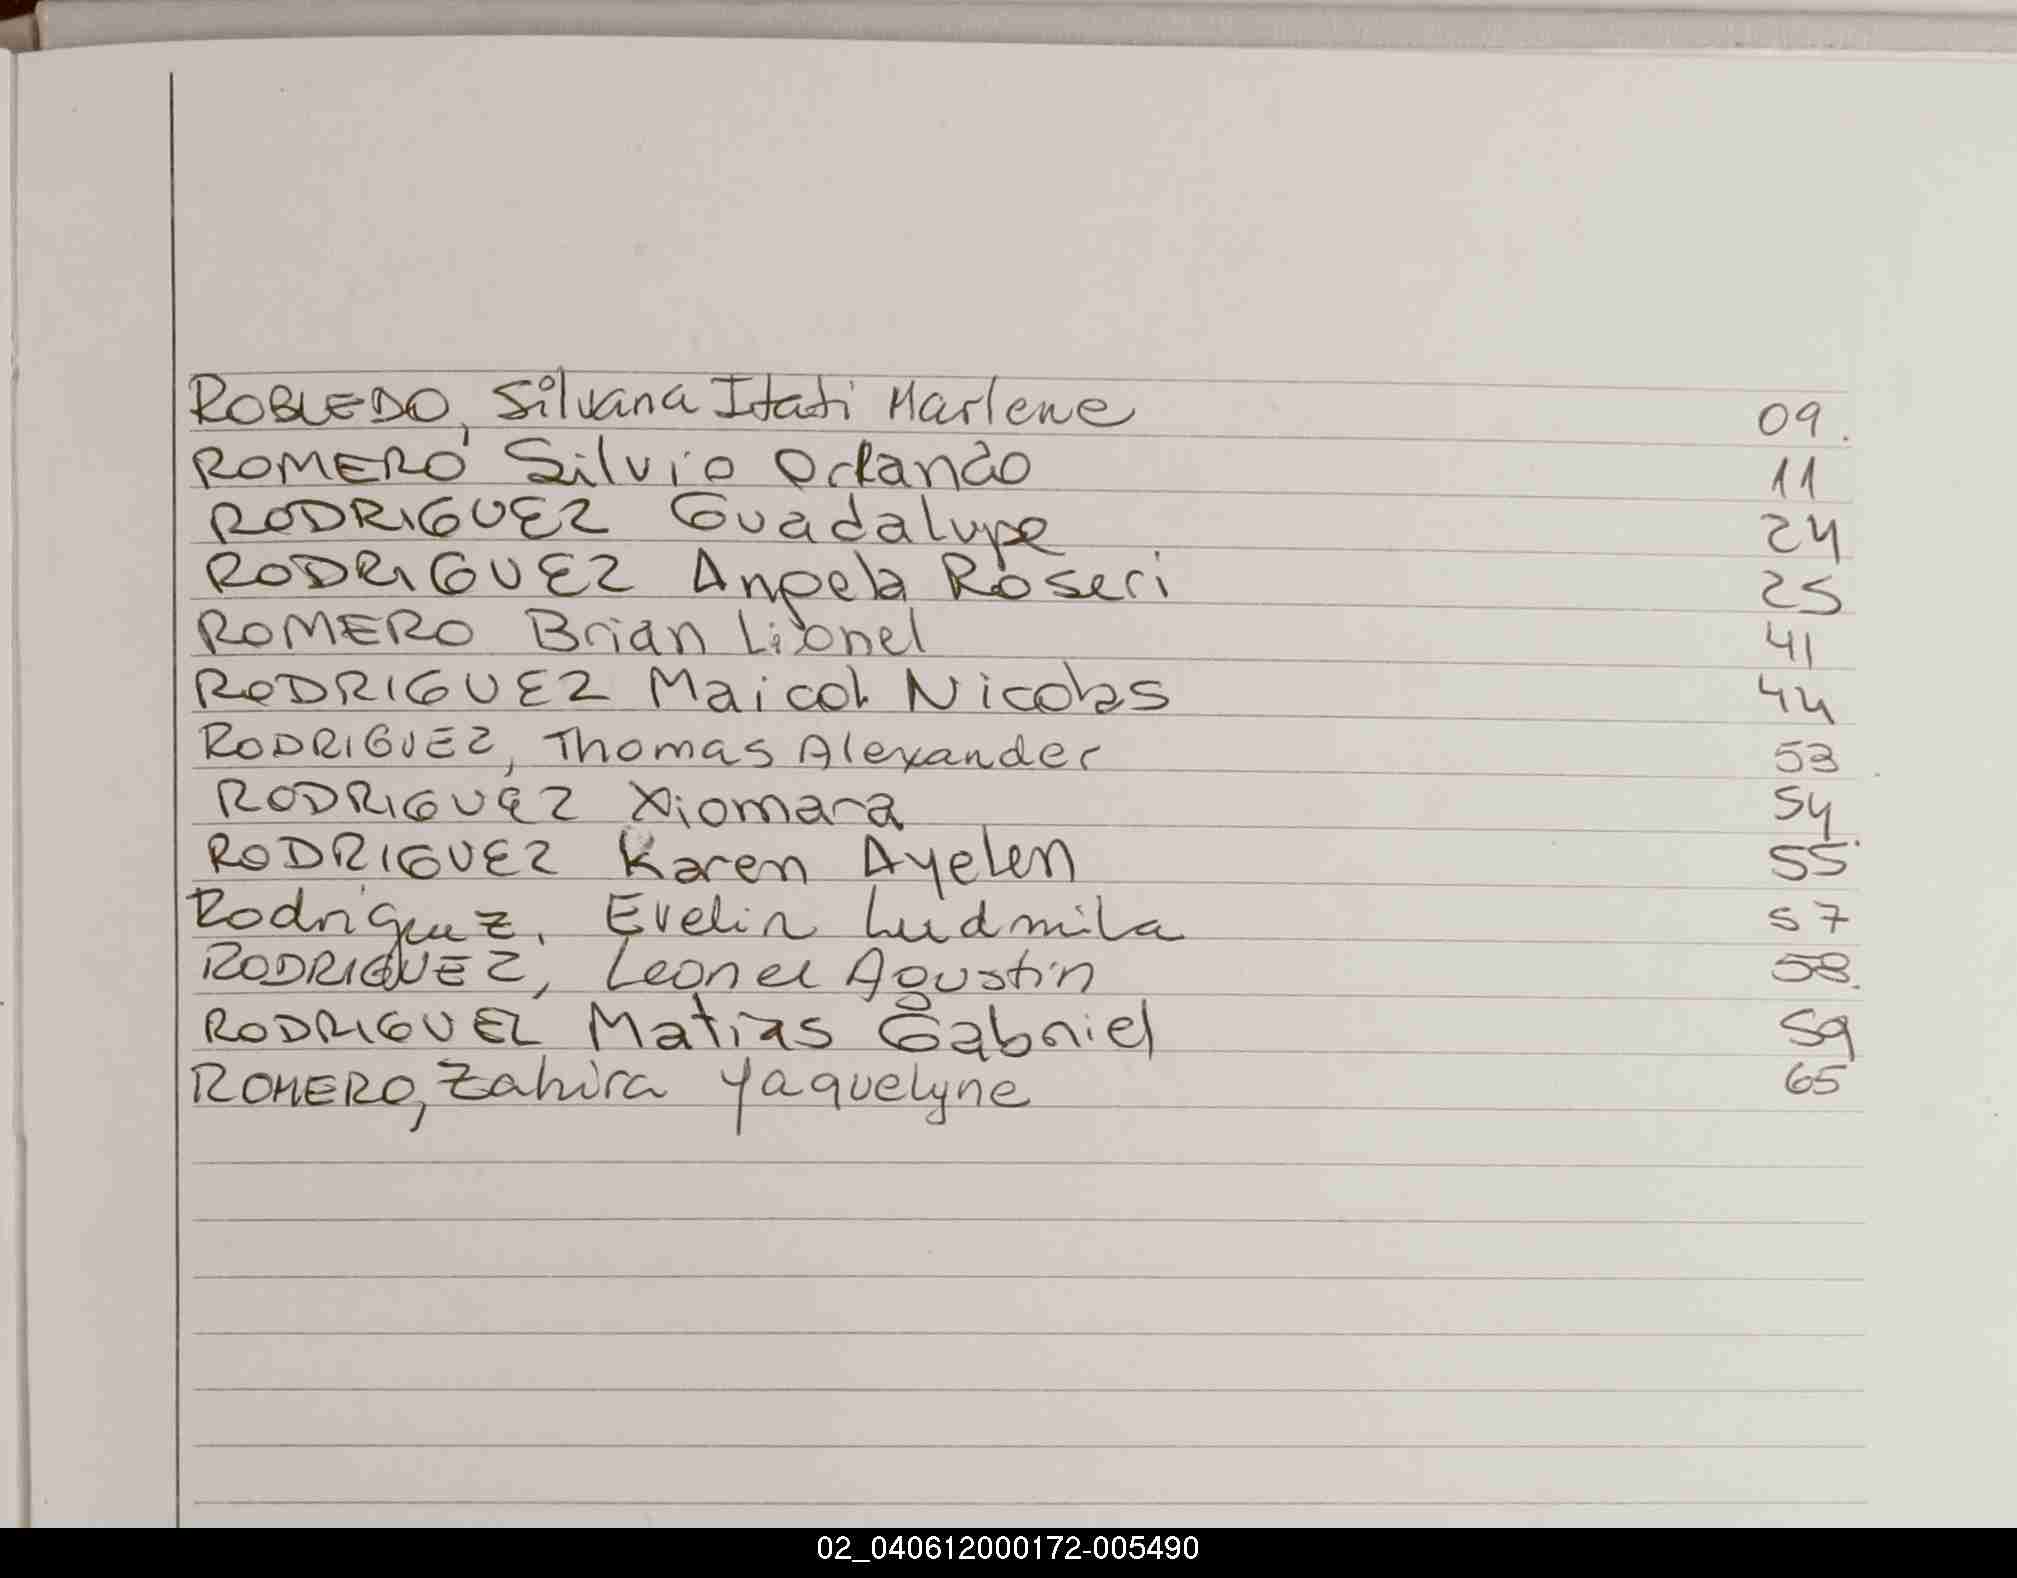 ROBLEDO, Silvana Itati Marlene 09.
ROMERO Silvio Orlando 11
RODRIGUEZ Guadalupe 24
RODRIGUEZ Angela Roseri 25
ROMERO Brian Lionel 41
RODRIGUEZ Maicol Nicolas 44
RODRIGUEZ, Thomas Alexander 53
RODRIGUEZ Xiomara 54
RODRIGUEZ Karen Ayelen 55
Rodriguez, Evelin Ludmila 57
RODRIGUEZ, Leonel Agustin 58.
RODRIGUEZ Matias Gabriel 59
ROMERO, Zahira Yaquelyne 65
02_040612000172-005490